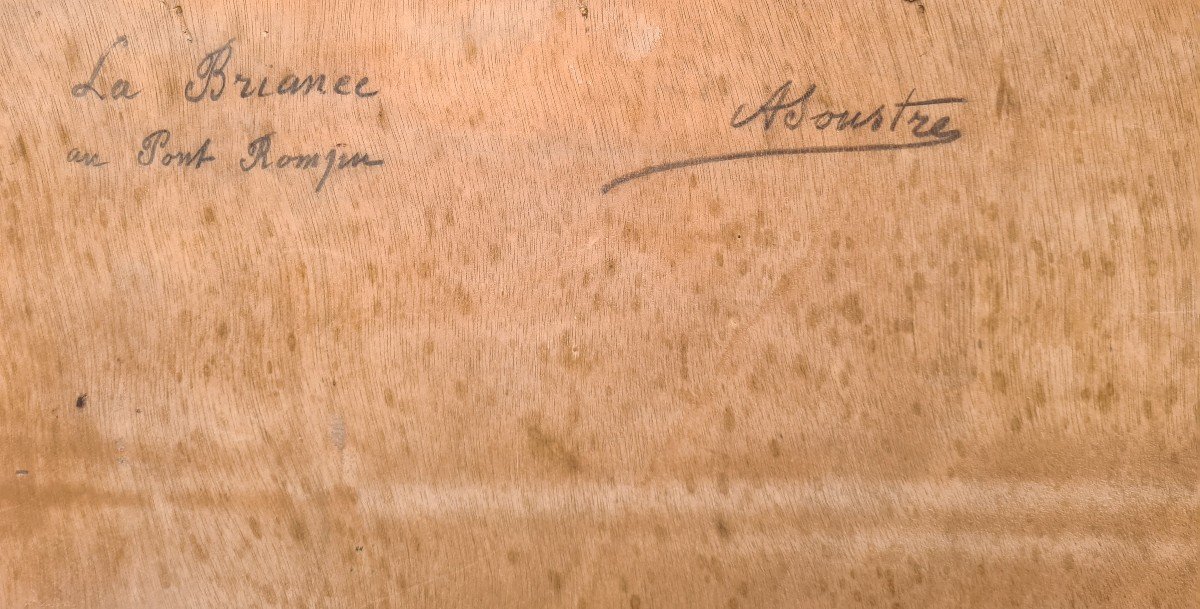 La Briance
au Pont Rompu
ASoustre